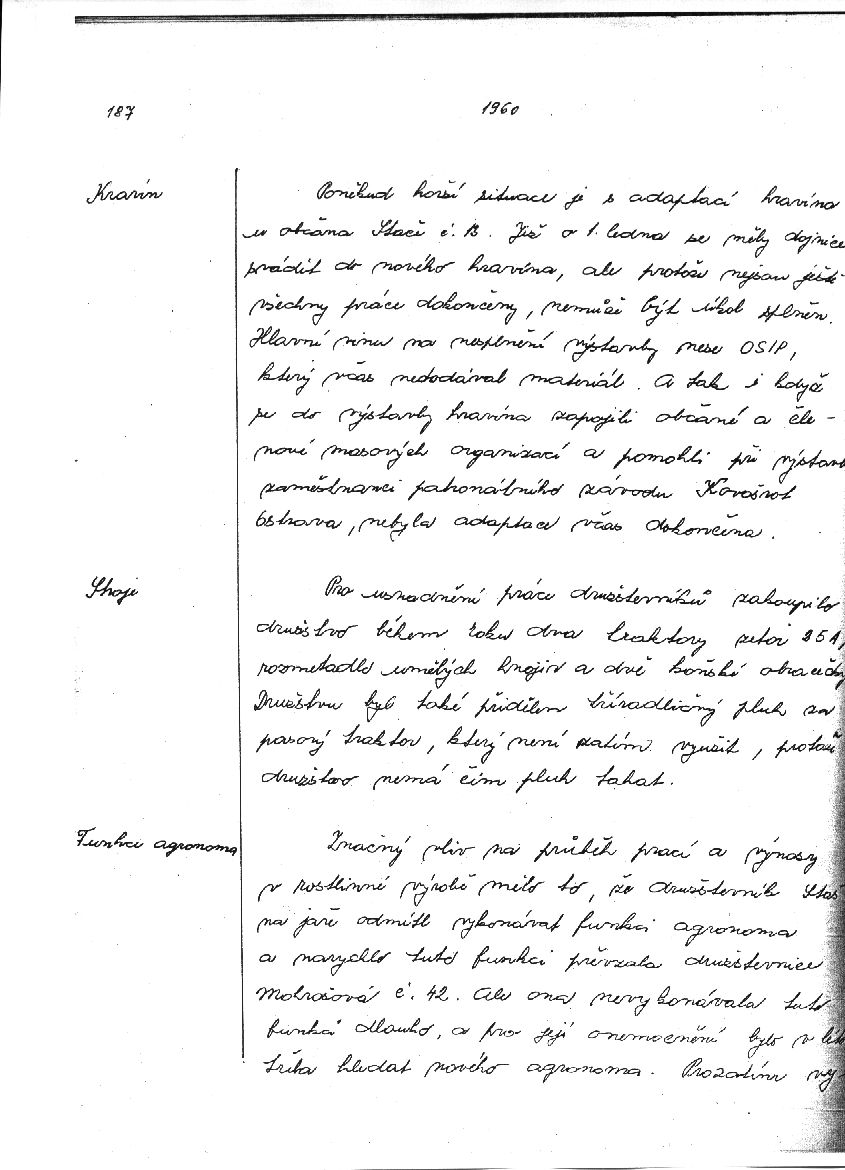 187
1960
Kravín
Poněkud horší situace je s adaptací kravína
u občana Stače č. 13. Již o 1. lednu se měly dojnice
svádit do nového kravína, ale protože nejsou ještě
všechny práce dokončeny, nemůže být úkol splněn.
Hlavní vinu na nesplnění výstavby nese OSIP,
který včas nedodával materiál. A tak i když
se do výstavby kravína zapojili občané a čle-
nové masových organizací a pomohli při výstav
zaměstnanci patronátního závodu Kovošrot
Ostrava, nebyla adaptace včas dokončena.
Stroje
Pro usnadnění práce družstevníků zakoupilo
družstvo během roku dva traktory zetor 25A,
rozmetadlo umělých hnojiv a dvě koňské obracečky
Družstvu byl také přidělen třířadličný pluh za
pasový traktor, který není zatím využit, protože
družstvo nemá čím pluh tahat.
Funkce agronoma
Značný vliv na průběh prací a výnosy
v rostlinné výrobě mělo to, že družstevník Stač
na jaře odmítl vykonávat funkci agronoma
a narychlo tuto funkci převzala družstevnice
Mokrošová č. 42. Ale ona nevykonávala tuto
funkci dlouho, a pro její onemocnění bylo v lét
třeba hledat nového agronoma. Prozatím vy